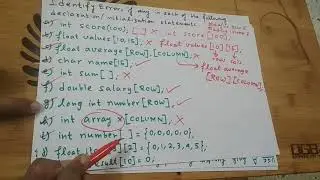 Identify Errors, if any in each of the following
declaration/initialization statements.
a) int score(100); [ ] × int score[100];
b) float values[10,15]; × float values[10][15];
c) float average[ROW],[COLUMN]; ×
d) char name[15]; ✓ float average
e) int sum[ ]; × [ROW][COLUMN];
f) double salary[ROW]; ✓
g) long int number[ROW]; ✓
h) int array x[COLUMN]; ×
i) int number[ ] = {0,0,0,0,0};
j) float [2] = {0,1,2,3,4,5};
[10] = 0;